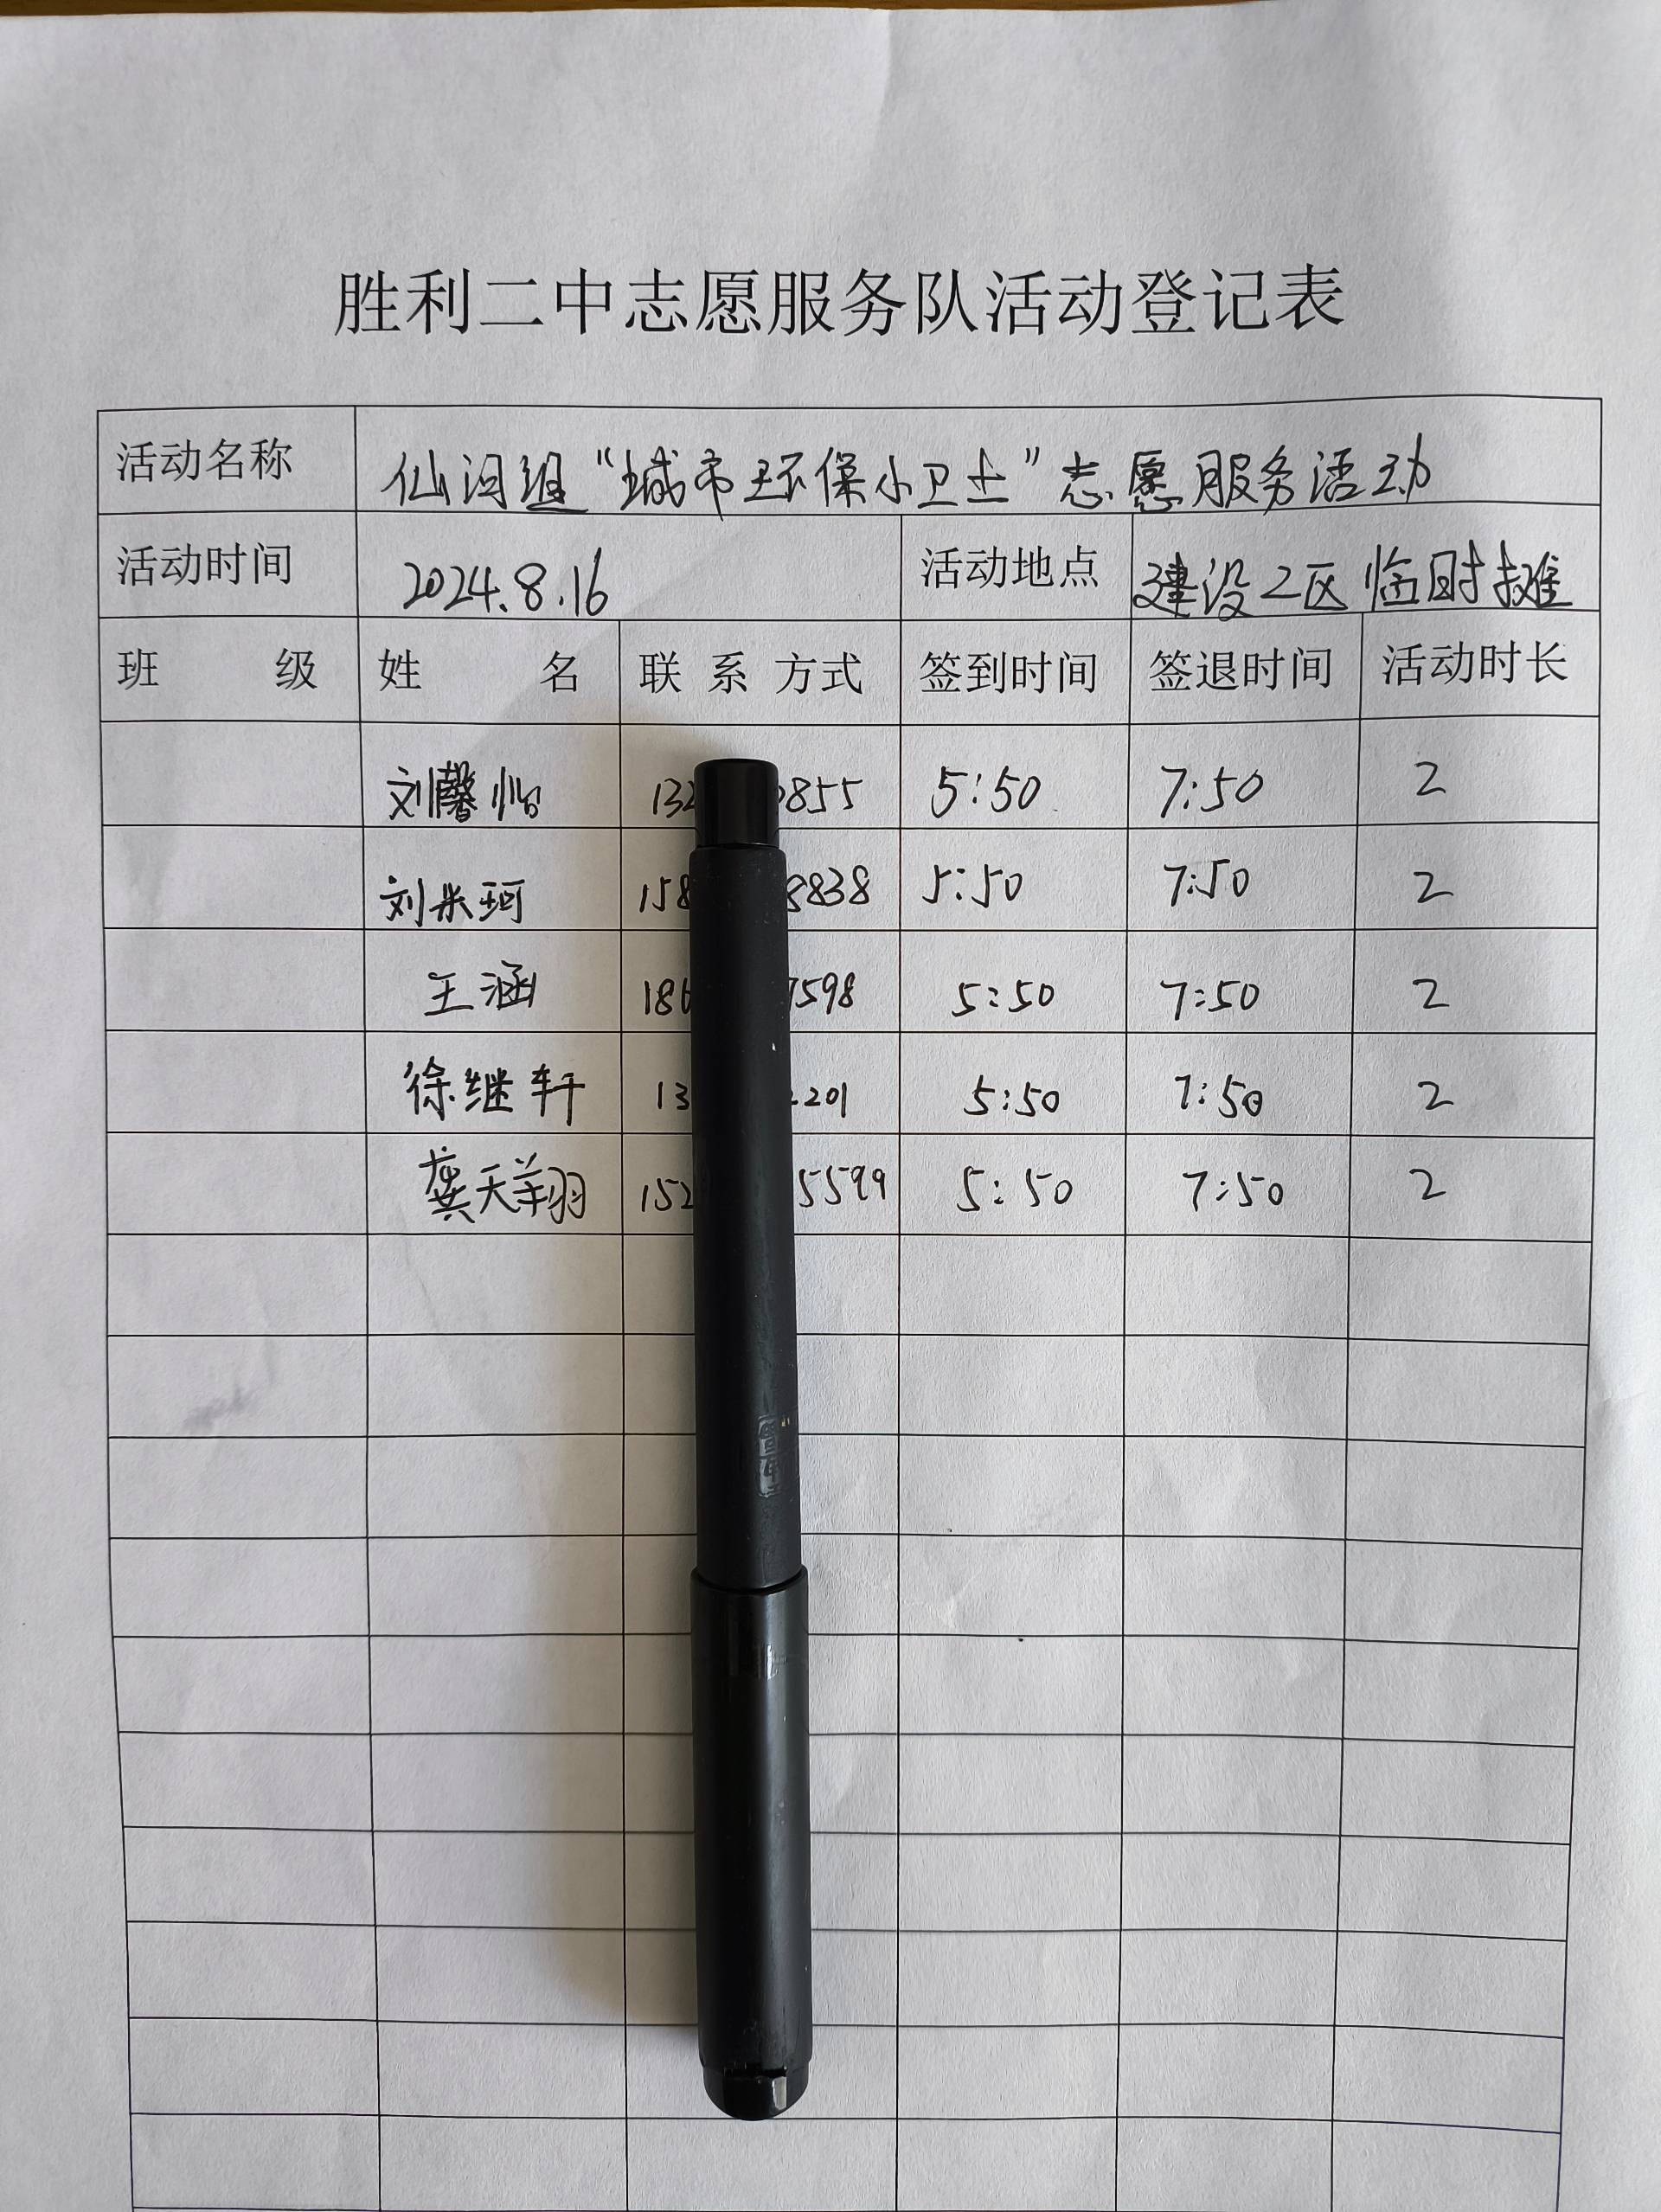 胜利二中志愿服务队活动登记表
活动名称 仙河组“城市环保小卫士”志愿服务活动
活动时间 2024.8.16 活动地点 建设二区临时摊
班 级 姓 名 联系方式 签到时间 签退时间 活动时长
刘馨怡 132 0855 5:50 7:50 2
刘米珂 158 8838 5:50 7:50 2
王涵 186 7598 5:50 7:50 2
徐继轩 13 2201 5:50 7:50 2
龚天翔 152 5599 5:50 7:50 2